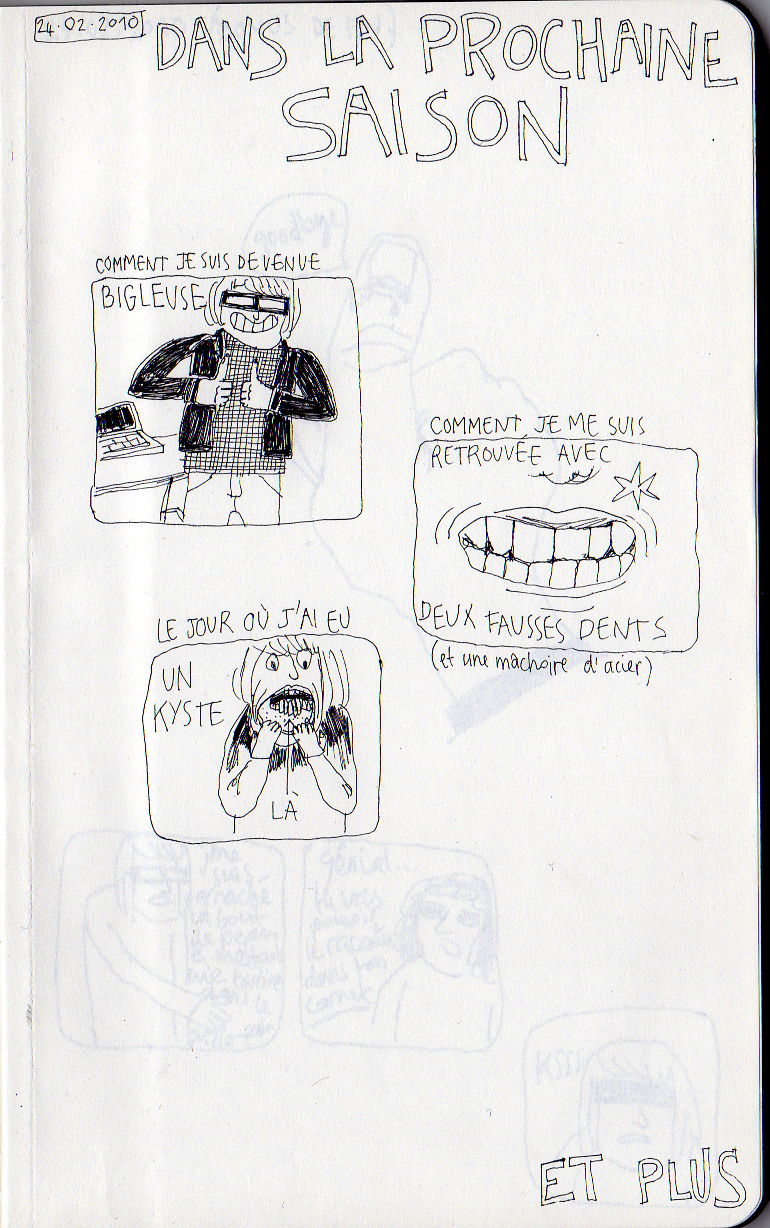 24.02.2010
DANS LA PROCHAINE
SAISON
COMMENT JE SUIS DEVENUE
BIGLEUSE
COMMENT JE ME SUIS
RETROUVÉE AVEC
DEUX FAUSSES DENTS
(et une machoire d'acier)
LE JOUR OÙ J'AI EU
UN
KYSTE
LÀ
ET PLUS